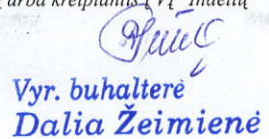 arba kreiptis į VĮ "Indėlių
Vyr. buhalterė
Dalia Žeimienė